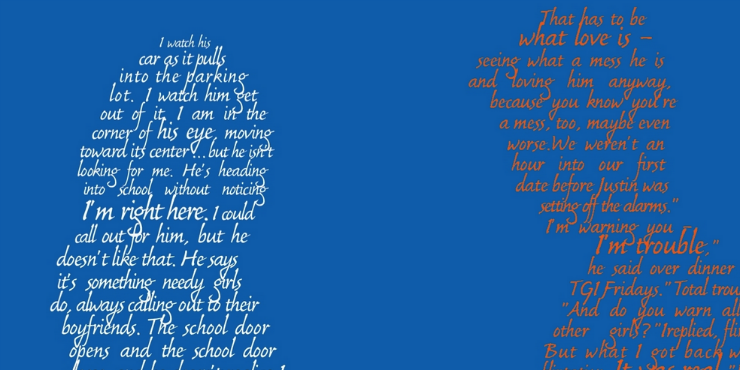 I watch his
car as it pulls
into the parking
lot. I watch him get
out of it. I am in the
corner of his eye, moving
toward its center... but he isn't
looking for me. He's heading
into school without noticing
I'm right here. I could
call out for him, but he
doesn't like that. He says
it's something needy girls
do, always calling out to their
boyfriends. The school door
opens and the school door
That has to be
what love is –
seeing what a mess he is
and loving him anyway,
because you know you're
a mess, too, maybe even
worse.We weren't an
hour into our first
date before Justin was
setting off the alarms."
I'm warning you –
I'm trouble,"
he said over dinner
TGI Fridays." Total trou
"And do you warn all
other girls?"Ireplied, fli
But what I got back w
It was real